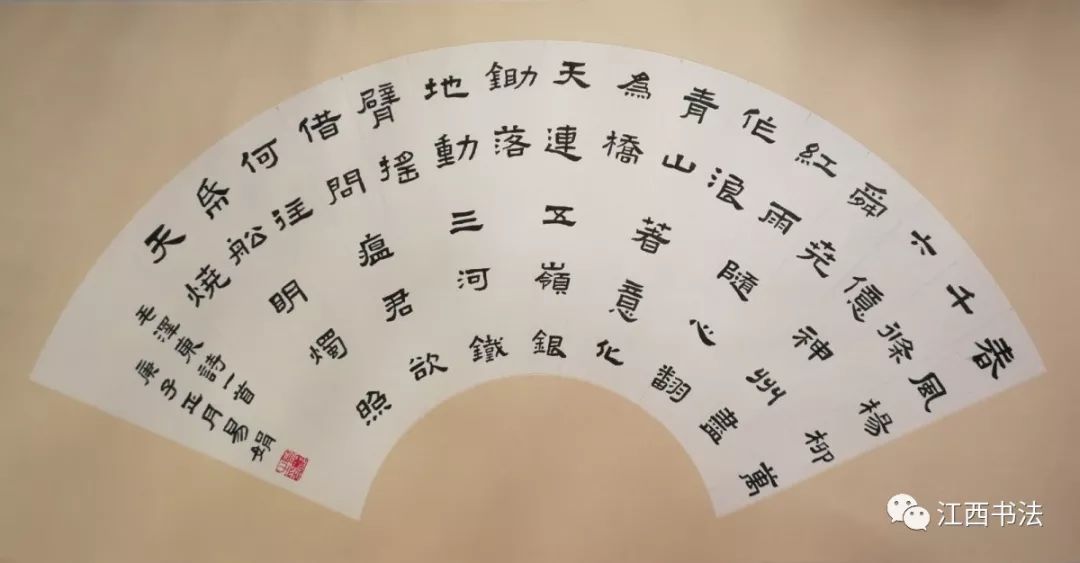 春風楊柳萬
千條
六億神州盡
舜堯
紅雨隨心翻
作浪
青山著意化
為橋
天連五嶺銀
鋤落
地動三河鐵
臂搖
借問瘟君欲
何往
帋船明燭照
天燒
毛澤東詩一首
庚子正月易娟
江西书法